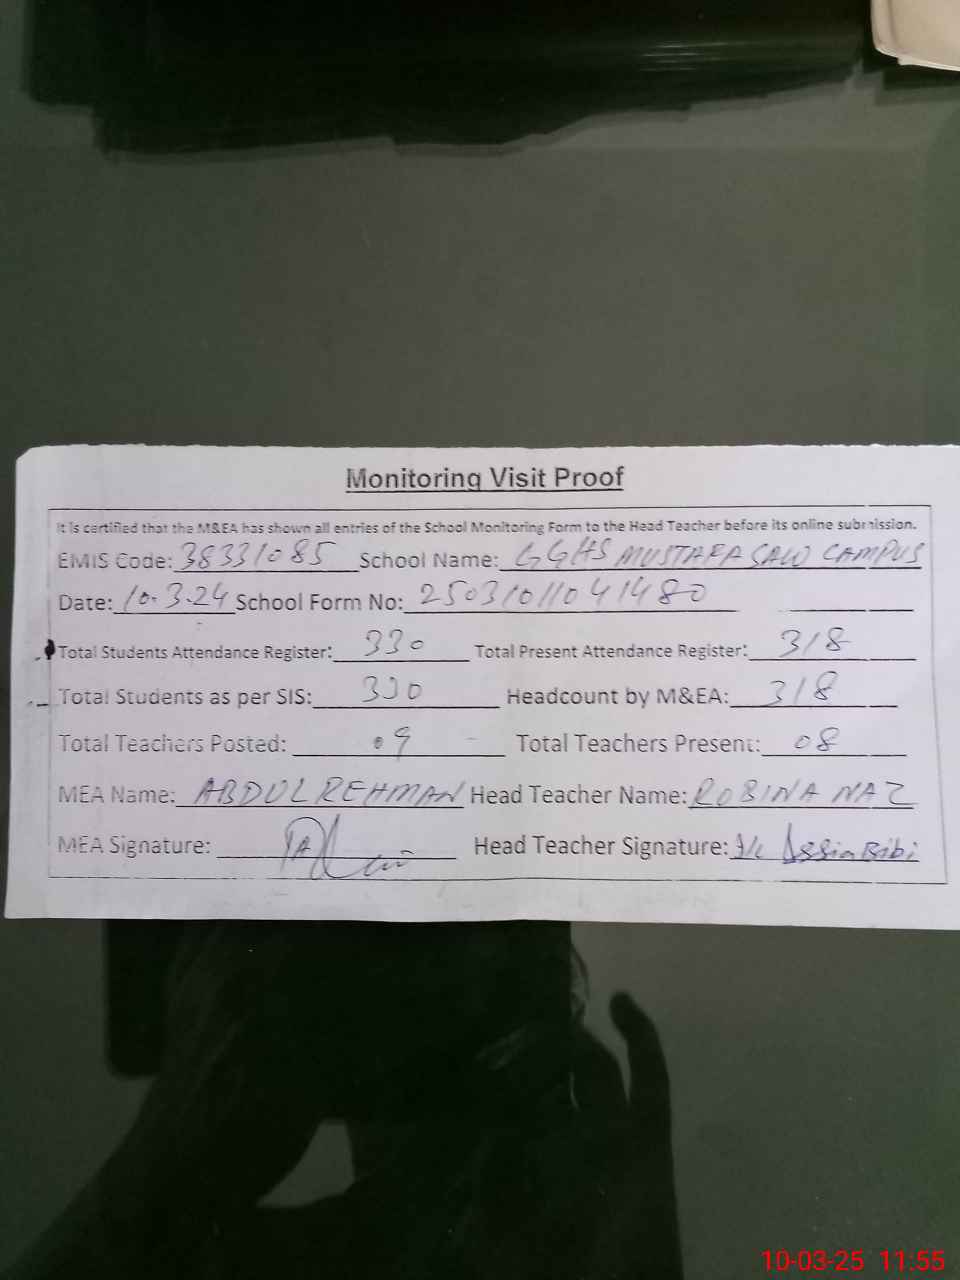 Monitoring Visit Proof
It is certified that the M&EA has shown all entries of the School Monitoring Form to the Head Teacher before its online submission.
EMIS Code: 38331085 School Name: GGHS MUSTAFA SAW CAMPUS
Date: 10.3.24 School Form No: 25031011041480
Total Students Attendance Register: 330 Total Present Attendance Register: 318
Total Students as per SIS: 330 Headcount by M&EA: 318
Total Teachers Posted: 09 Total Teachers Present: 08
MEA Name: ABDUL REHMAN Head Teacher Name: ROBINA NAZ
MEA Signature: Head Teacher Signature: I/c Assia Bibi
10-03-25 11:55